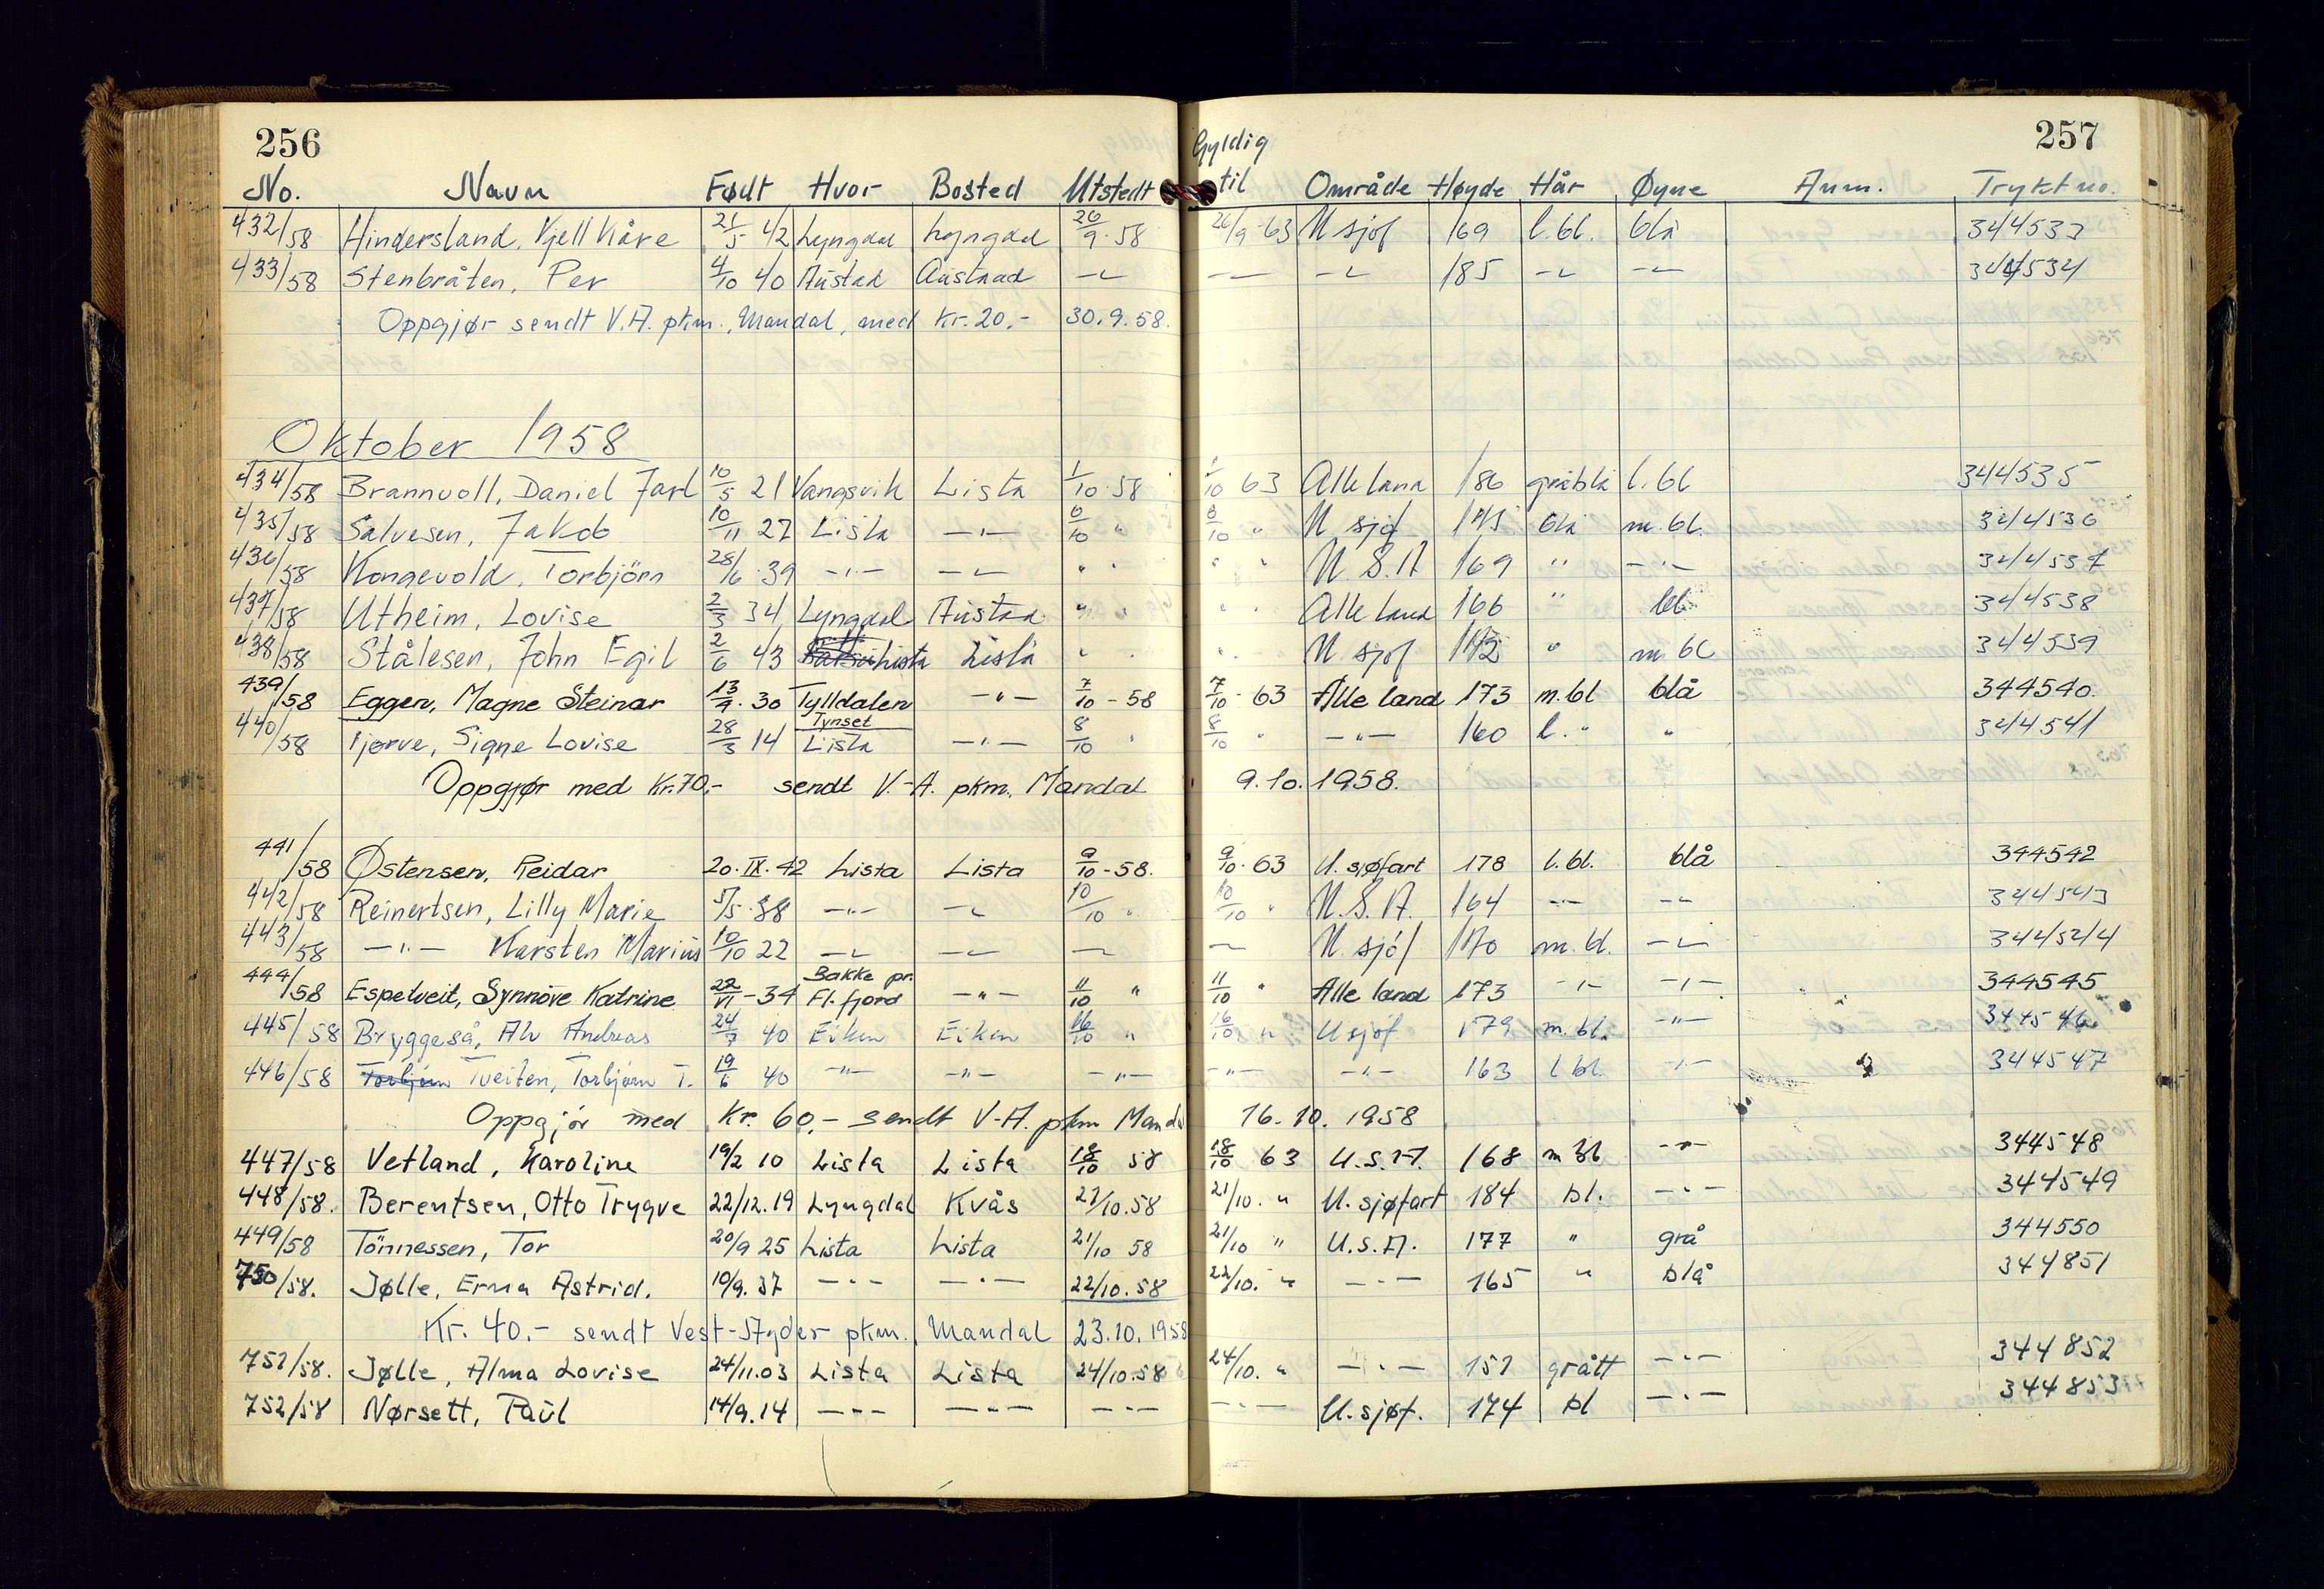 256
257
No. Navn Født Hvor Bosted Utstedt Gyldig til Område Høyde Hår Øyne Anm. Trykt no.
432/58 Hindersland, Kjell Kåre 21/5 42 Lyngdal Lyngdal 26/9.58 26/9-63 U sjøf 169 l.bl. blå 344533
433/58 Stenbråten, Per 4/10 40 Austad Austaad -"- -"- -"- 185 -"- -"- 344534
Oppgjør sendt V.A. pkm., Mandal, med Kr. 20.- 30.9.58.
Oktober 1958
434/58 Brannvoll, Daniel Jarl 10/5 21 Vangsvik Lista 1/10.58 1/10 63 Alle land 186 gråblå l.bl 344535
435/58 Salvesen, Jakob 10/11 27 Lista -"- 6/10 " 6/10 " U sjøf 175 blå m.bl. 344536
436/58 Kongevold, Torbjörn 28/6.39 -"- -"- " " " " U.S.A 169 " -"- 344537
437/58 Utheim, Lovise 2/3 34 Lyngdal Austad " " " " Alle land 166 " bl. 344538
438/58 Stålesen, John Egil 2/6 43 Lista Lista " " " " U sjøf 172 " m bl 344539
439/58 Eggen, Magne Steinar 13/9.30 Tylldalen Tynset -"- 7/10-58 7/10-63 Alle land 173 m.bl blå 344540.
440/58 Tjørve, Signe Lovise 28/3 14 Lista -"- 8/10 " 8/10 " -"- 160 l. " " 344541
Oppgjør med Kr.70,- sendt V.-A. pkm. Mandal 9.10.1958.
441/58 Østensen, Reidar 20.IX.42 Lista Lista 9/10-58. 9/10.63 U.sjøfart 178 l.bl. blå 344542
442/58 Reinertsen, Lilly Marie 5/5.38 -"- -"- 10/10 " 10/10 " U.S.A. 164 -"- -"- 344543
443/58 -"- Karsten Marius 10/10 22 -"- -"- -"- -"- U sjöf 170 m.bl. -"- 344544
444/58 Espetveit, Synnöve Katrine 22/VI-34 Bakke pr. Fl.fjord -"- 11/10 " 11/10 " Alle land 173 -"- -"- 344545
445/58 Bryggeså, Alv Andreas 24/7 40 Eiken Eiken 16/10 " 16/10 " U sjøf 179 m.bl. -"- 344546
446/58 Torbjørn Tveiten, Torbjørn T. 19/6 40 -"- -"- -"- -"- -"- 163 l bl. -"- 344547
Oppgjör med Kr. 60,- sendt V-A. pkm Mandal 16.10.1958
447/58 Vetland, Karoline 19/2 10 Lista Lista 18/10 58 18/10 63 U.S.A. 168 m bl -"- 344548
448/58. Berentsen, Otto Trygve 22/12.19 Lyngdal Kvås 21/10.58 21/10. " U.sjøfart 184 bl. -"- 344549
449/58 Tönnessen, Tor 20/9 25 Lista Lista 21/10 58 21/10 " U.S.A. 177 " grå 344550
750/58. Jølle, Erna Astrid. 10/9.37 -"- -"- 22/10.58 22/10. " -"- 165 " blå 344851
Kr. 40.- sendt Vest-Agder pkm. Mandal 23.10.1958
751/58. Jølle, Alma Lovise 24/11.03 Lista Lista 24/10.58 24/10. " -"- 151 grått -"- 344852
752/58 Nørsett, Paul 14/9.14 -"- -"- -"- -"- U.sjøf. 174 bl -"- 344853